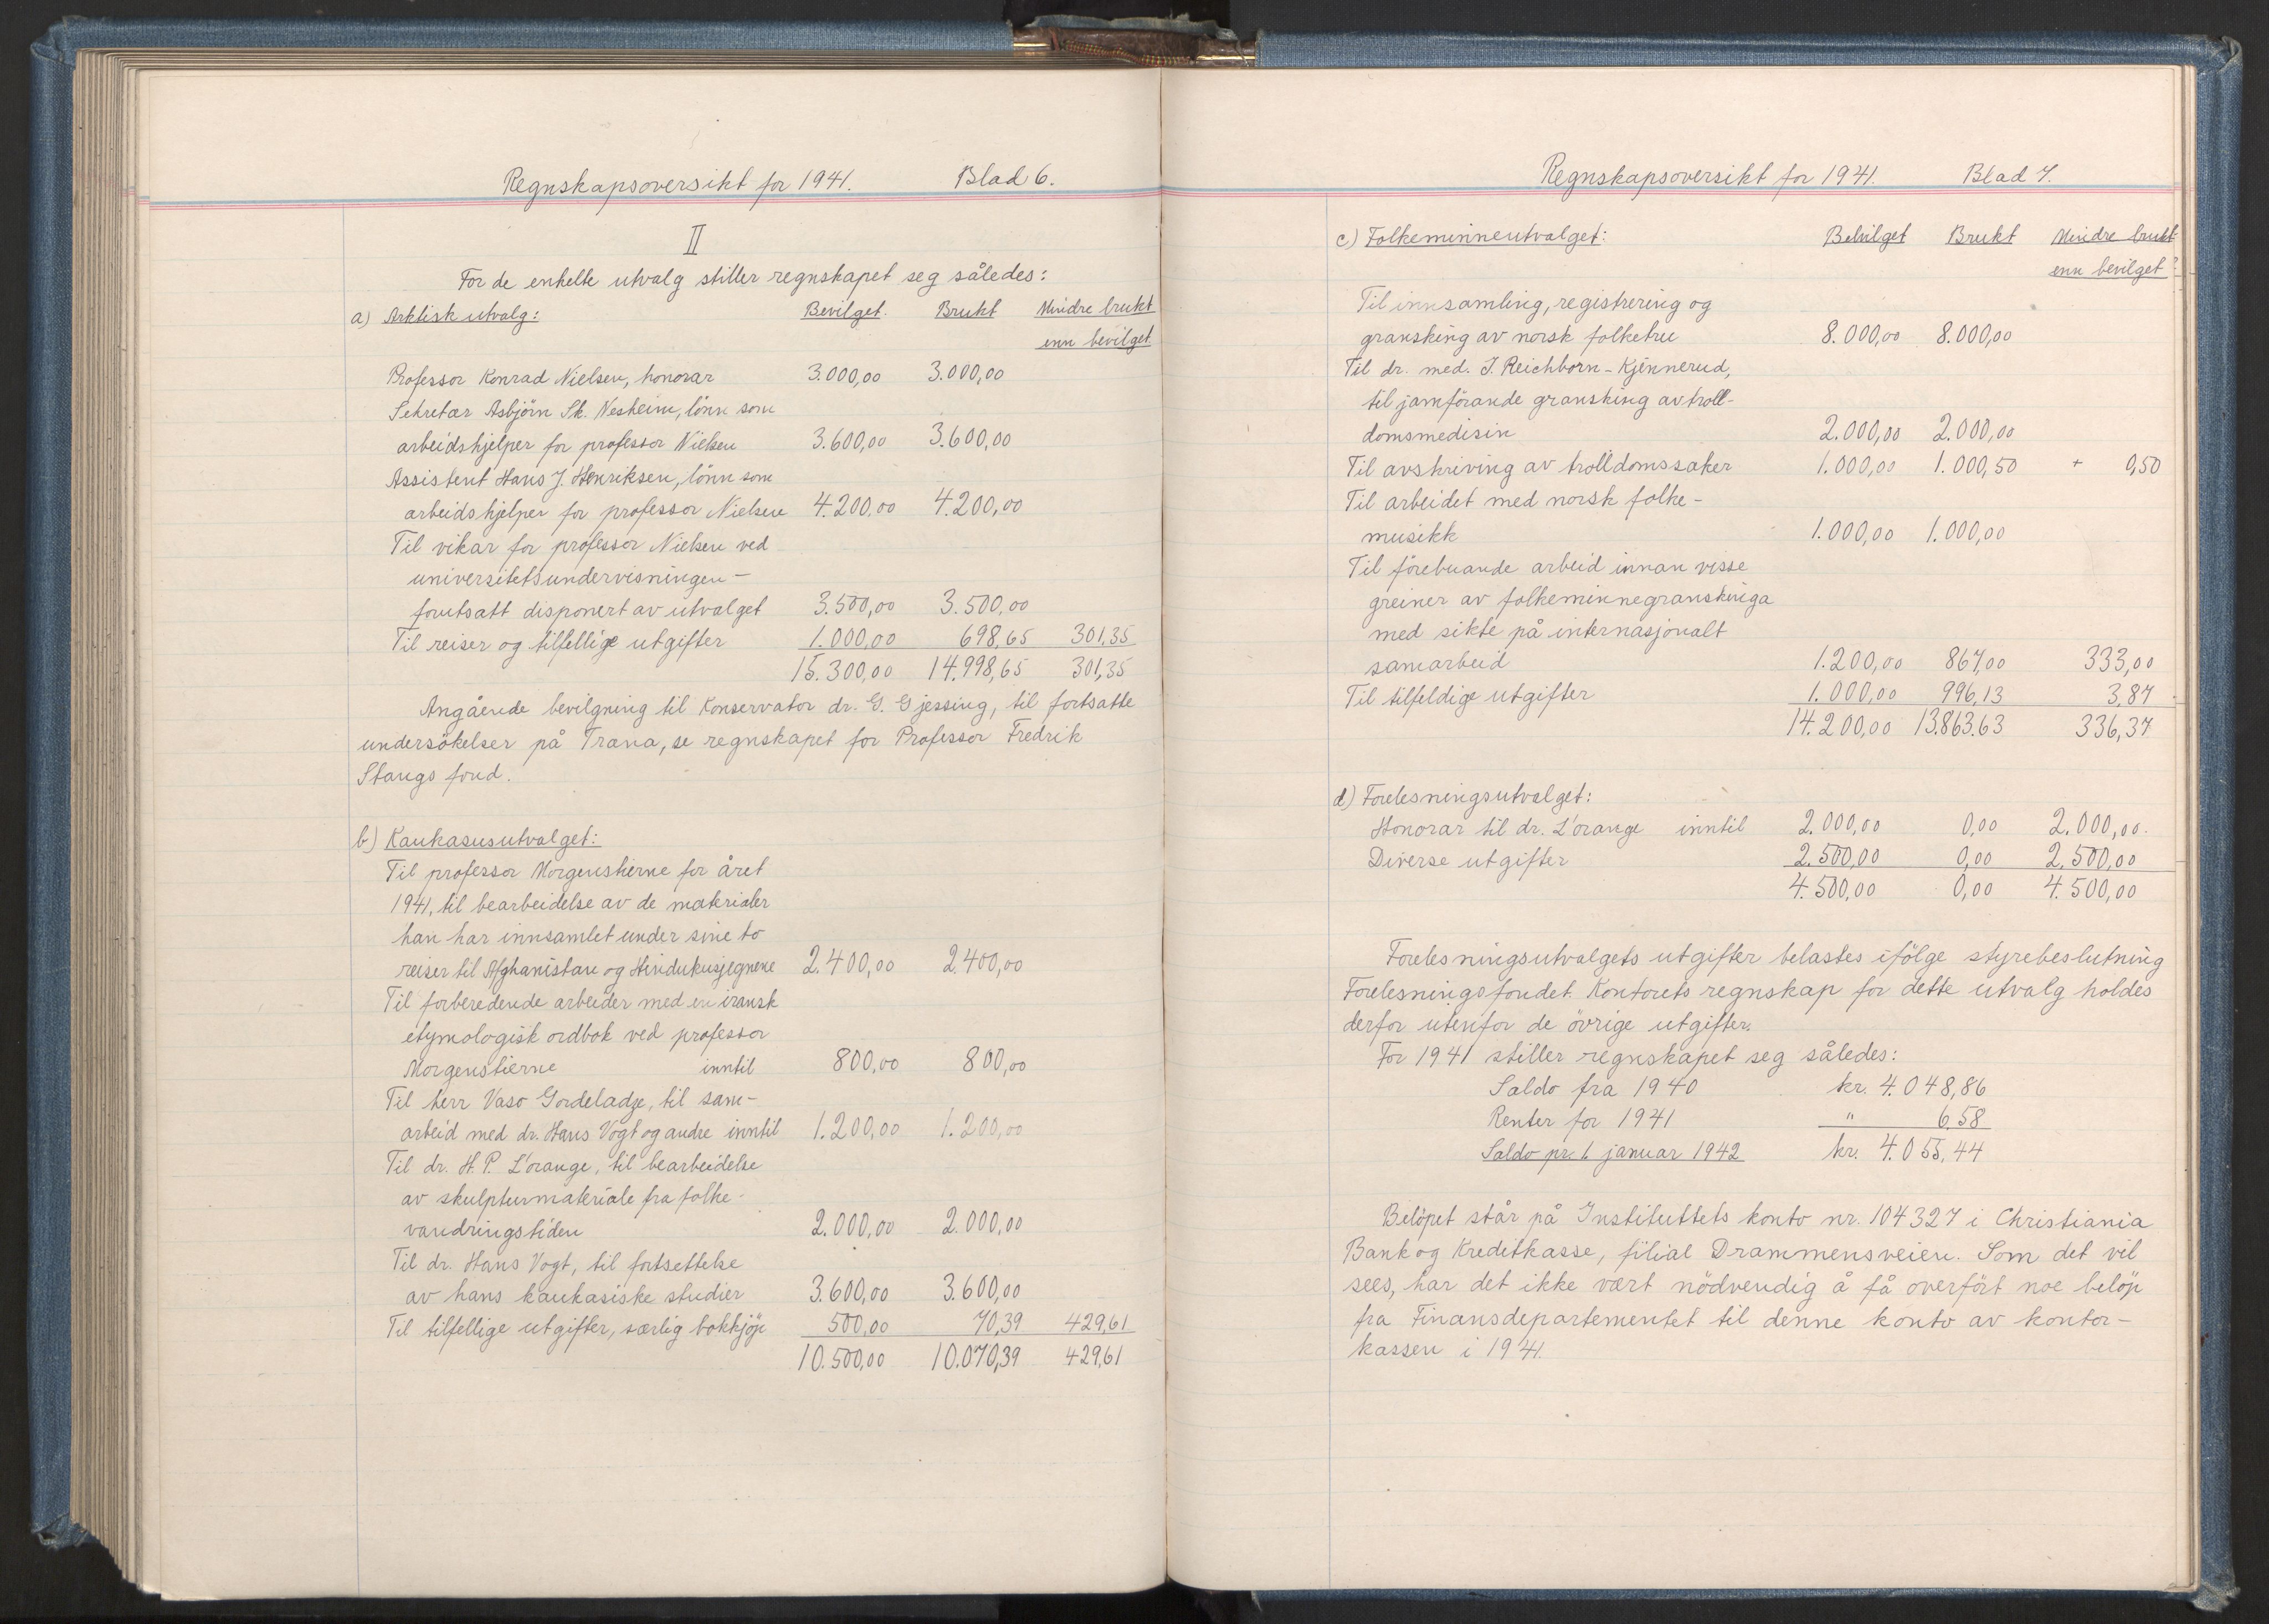 Regnskapsoversikt for 1941. Blad 6.
II
For de enkelte utvalg stiller regnskapet seg således:
a) Arktisk utvalg: Bevilget. Brukt Mindre brukt
enn bevilget
Professor Konrad Nielsen, honorar 3.000,00 3.000,00
Sekretær Asbjörn Sk. Nesheim, lönn som
arbeidshjelper for professor Nielsen 3.600,00 3.600,00
Assistent Hans J. Henriksen, lönn som
arbeidshjelper for professor Nielsen 4.200,00 4.200,00
Til vikar for professor Nielsen ved
universitetsundervisningen –
forutsatt disponert av utvalget 3.500,00 3.500,00
Til reiser og tilfellige utgifter 1.000,00 698,65 301,35
15.300,00 14.998,65 301,35
Angående bevilgning til Konservator dr. G. Gjessing, til fortsatte
undersökelser på Træna, se regnskapet for Professor Fredrik
Stangs fond.
b) Kaukasusutvalget:
Til professor Morgenstierne for året
1941, til bearbeidelse av de materialer
han har innsamlet under sine to
reiser til Afghanistan og Hindukusjegnene 2.400,00 2.400,00
Til forberedende arbeider med en iransk
etymologisk ordbok ved professor
Morgenstierne inntil 800,00 800,00
Til herr Vaso Gordeladze, til sam-
arbeid med dr. Hans Vogt og andre inntil 1.200,00 1.200,00
Til dr. H. P. L'orange, til bearbeidelse
av skulpturmateriale fra folke-
vandringstiden 2.000,00 2.000,00
Til dr. Hans Vogt, til fortsettelse
av hans kaukasiske studier 3.600,00 3.600,00
Til tilfellige utgifter, særlig bokkjöp 500,00 70,39 429,61
10.500,00 10.070,39 429,61
Regnskapsoversikt for 1941. Blad 7.
c) Folkeminneutvalget: Bevilget Brukt Mindre brukt
enn bevilget
Til innsamling, registrering og
gransking av norsk folketru 8.000,00 8.000,00
Til dr. med. I. Reichborn-Kjennerud,
til jamförande gransking av troll-
domsmedisin 2.000,00 2.000,00
Til avskriving av trolldomssaker 1.000,00 1.000,50 + 0,50
Til arbeidet med norsk folke-
musikk 1.000,00 1.000,00
Til förebuande arbeid innan visse
greiner av folkeminnegranskinga
med sikte på internasjonalt
samarbeid 1.200,00 867,00 333,00
Til tilfeldige utgifter 1.000,00 996,13 3,87
14.200,00 13.863.63 336,37
d) Forelesningsutvalget:
Honorar til dr. L'orange inntil 2.000,00 0,00 2.000,00.
Diverse utgifter 2.500,00 0,00 2.500,00
4.500,00 0,00 4.500,00
Forelesningsutvalgets utgifter belastes ifölge styrebeslutning
Forelesningsfondet. Kontorets regnskap for dette utvalg holdes
derfor utenfor de övrige utgifter.
For 1941 stiller regnskapet seg således:
Saldo fra 1940 kr. 4.048,86
Renter for 1941 " 6,58
Saldo pr. 1 januar 1942 kr. 4.055,44
Belöpet står på Instituttets konto nr. 104327 i Christiania
Bank og Kreditkasse, filial Drammensveien. Som det vil
sees, har det ikke vært nödvendig å få overfört noe belöp
fra Finansdepartementet til denne konto av kontor-
kassen i 1941.